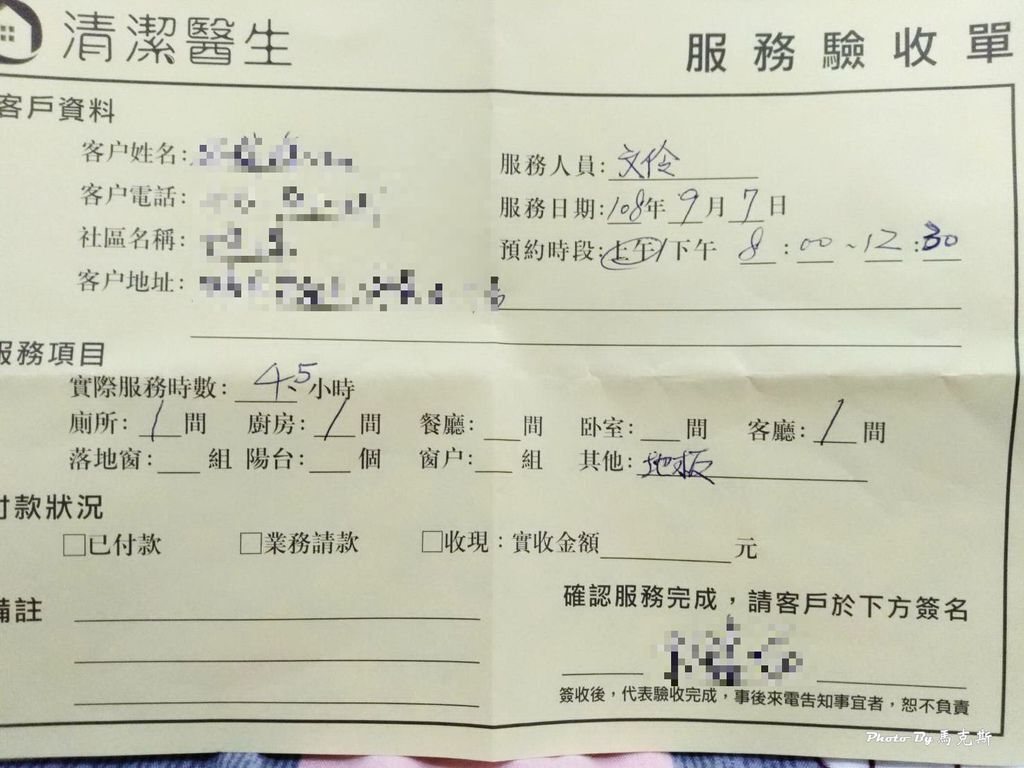 清潔醫生 服務驗收單
客戶資料
客戶姓名:
客戶電話:
社區名稱:
客戶地址:
服務人員:文伶
服務日期:108年9月7日
預約時段:上午/下午 8:00~12:30
服務項目
實際服務時數:4.5小時
廁所:1間 廚房:1間 餐廳:__間 卧室:__間 客廳:1間
落地窗:__組 陽台:__個 窗户:__組 其他:地板
付款狀況
□已付款 □業務請款 □收現:實收金額______元
備註
確認服務完成,請客戶於下方簽名
簽收後,代表驗收完成,事後來電告知事宜者,恕不負責
Photo By 馬克斯